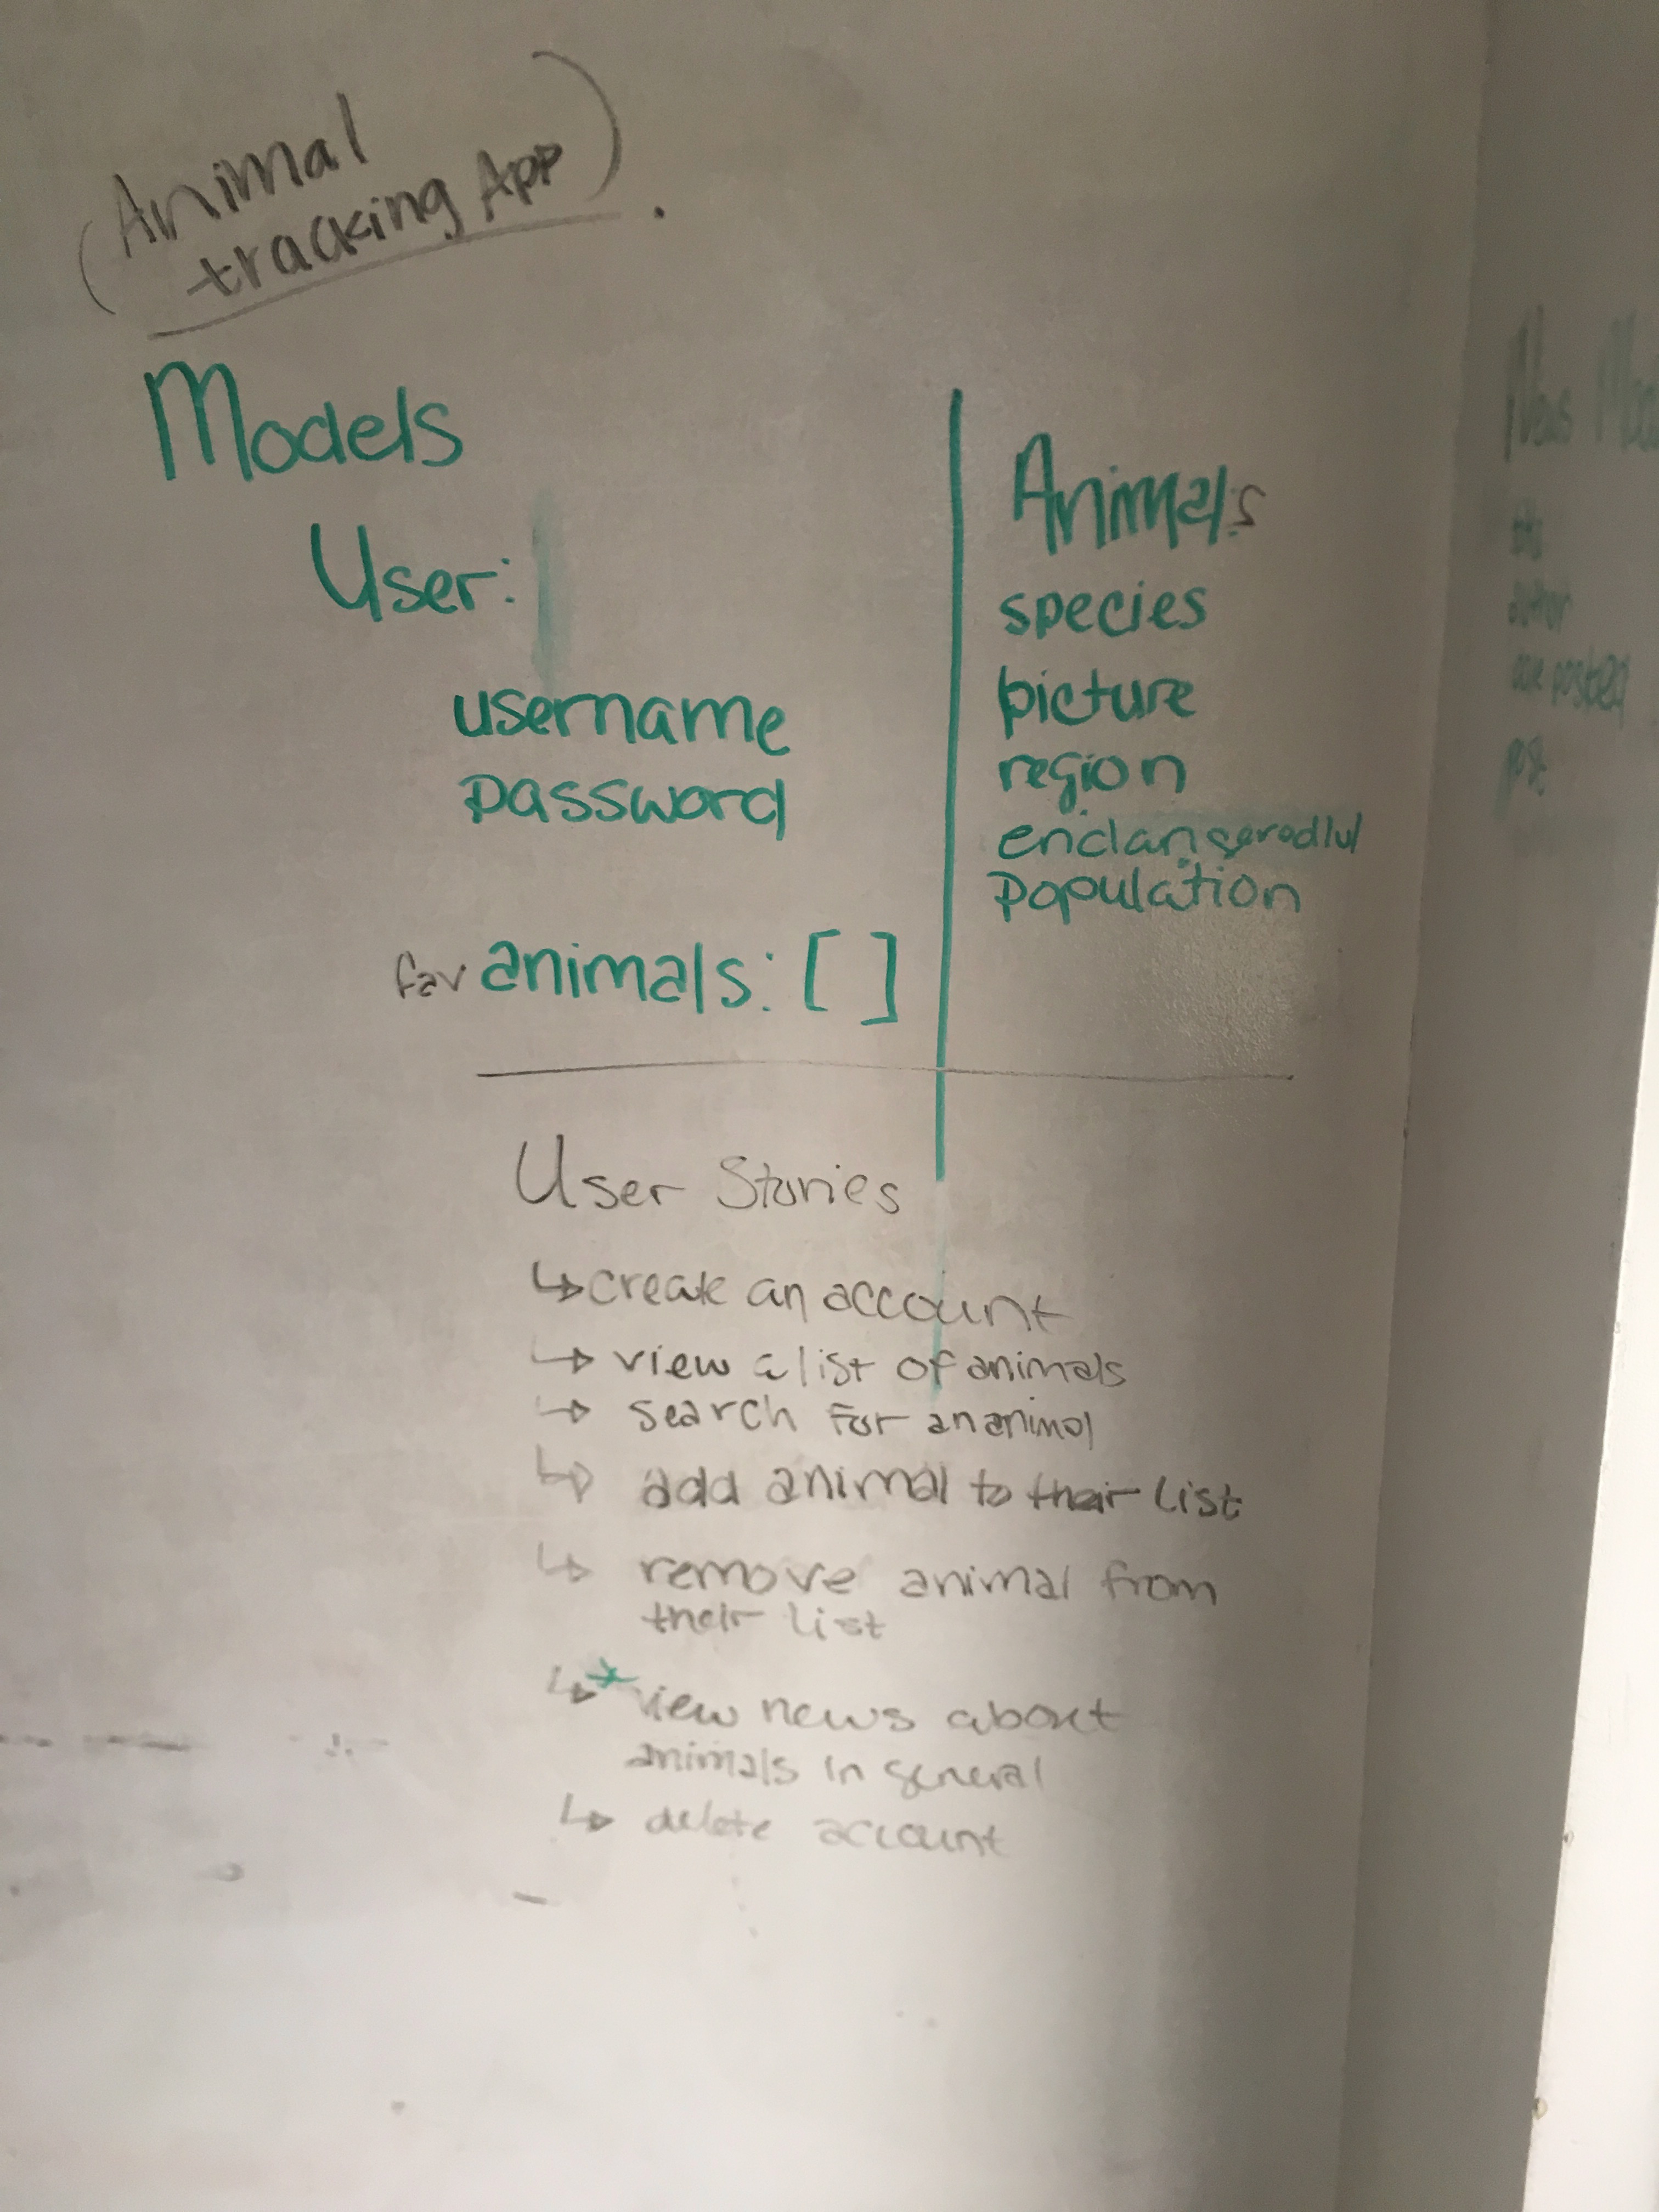 (Animal
tracking App).
Models
User:
username
password
fav animals: [ ]
Animals
species
picture
region
endangeredlvl
population
User Stories
↳ create an account
↳ view a list of animals
↳ search for an animal
↳ add animal to their list
↳ remove animal from
their list
↳ * view news about
animals in general
↳ delete account
News
posted